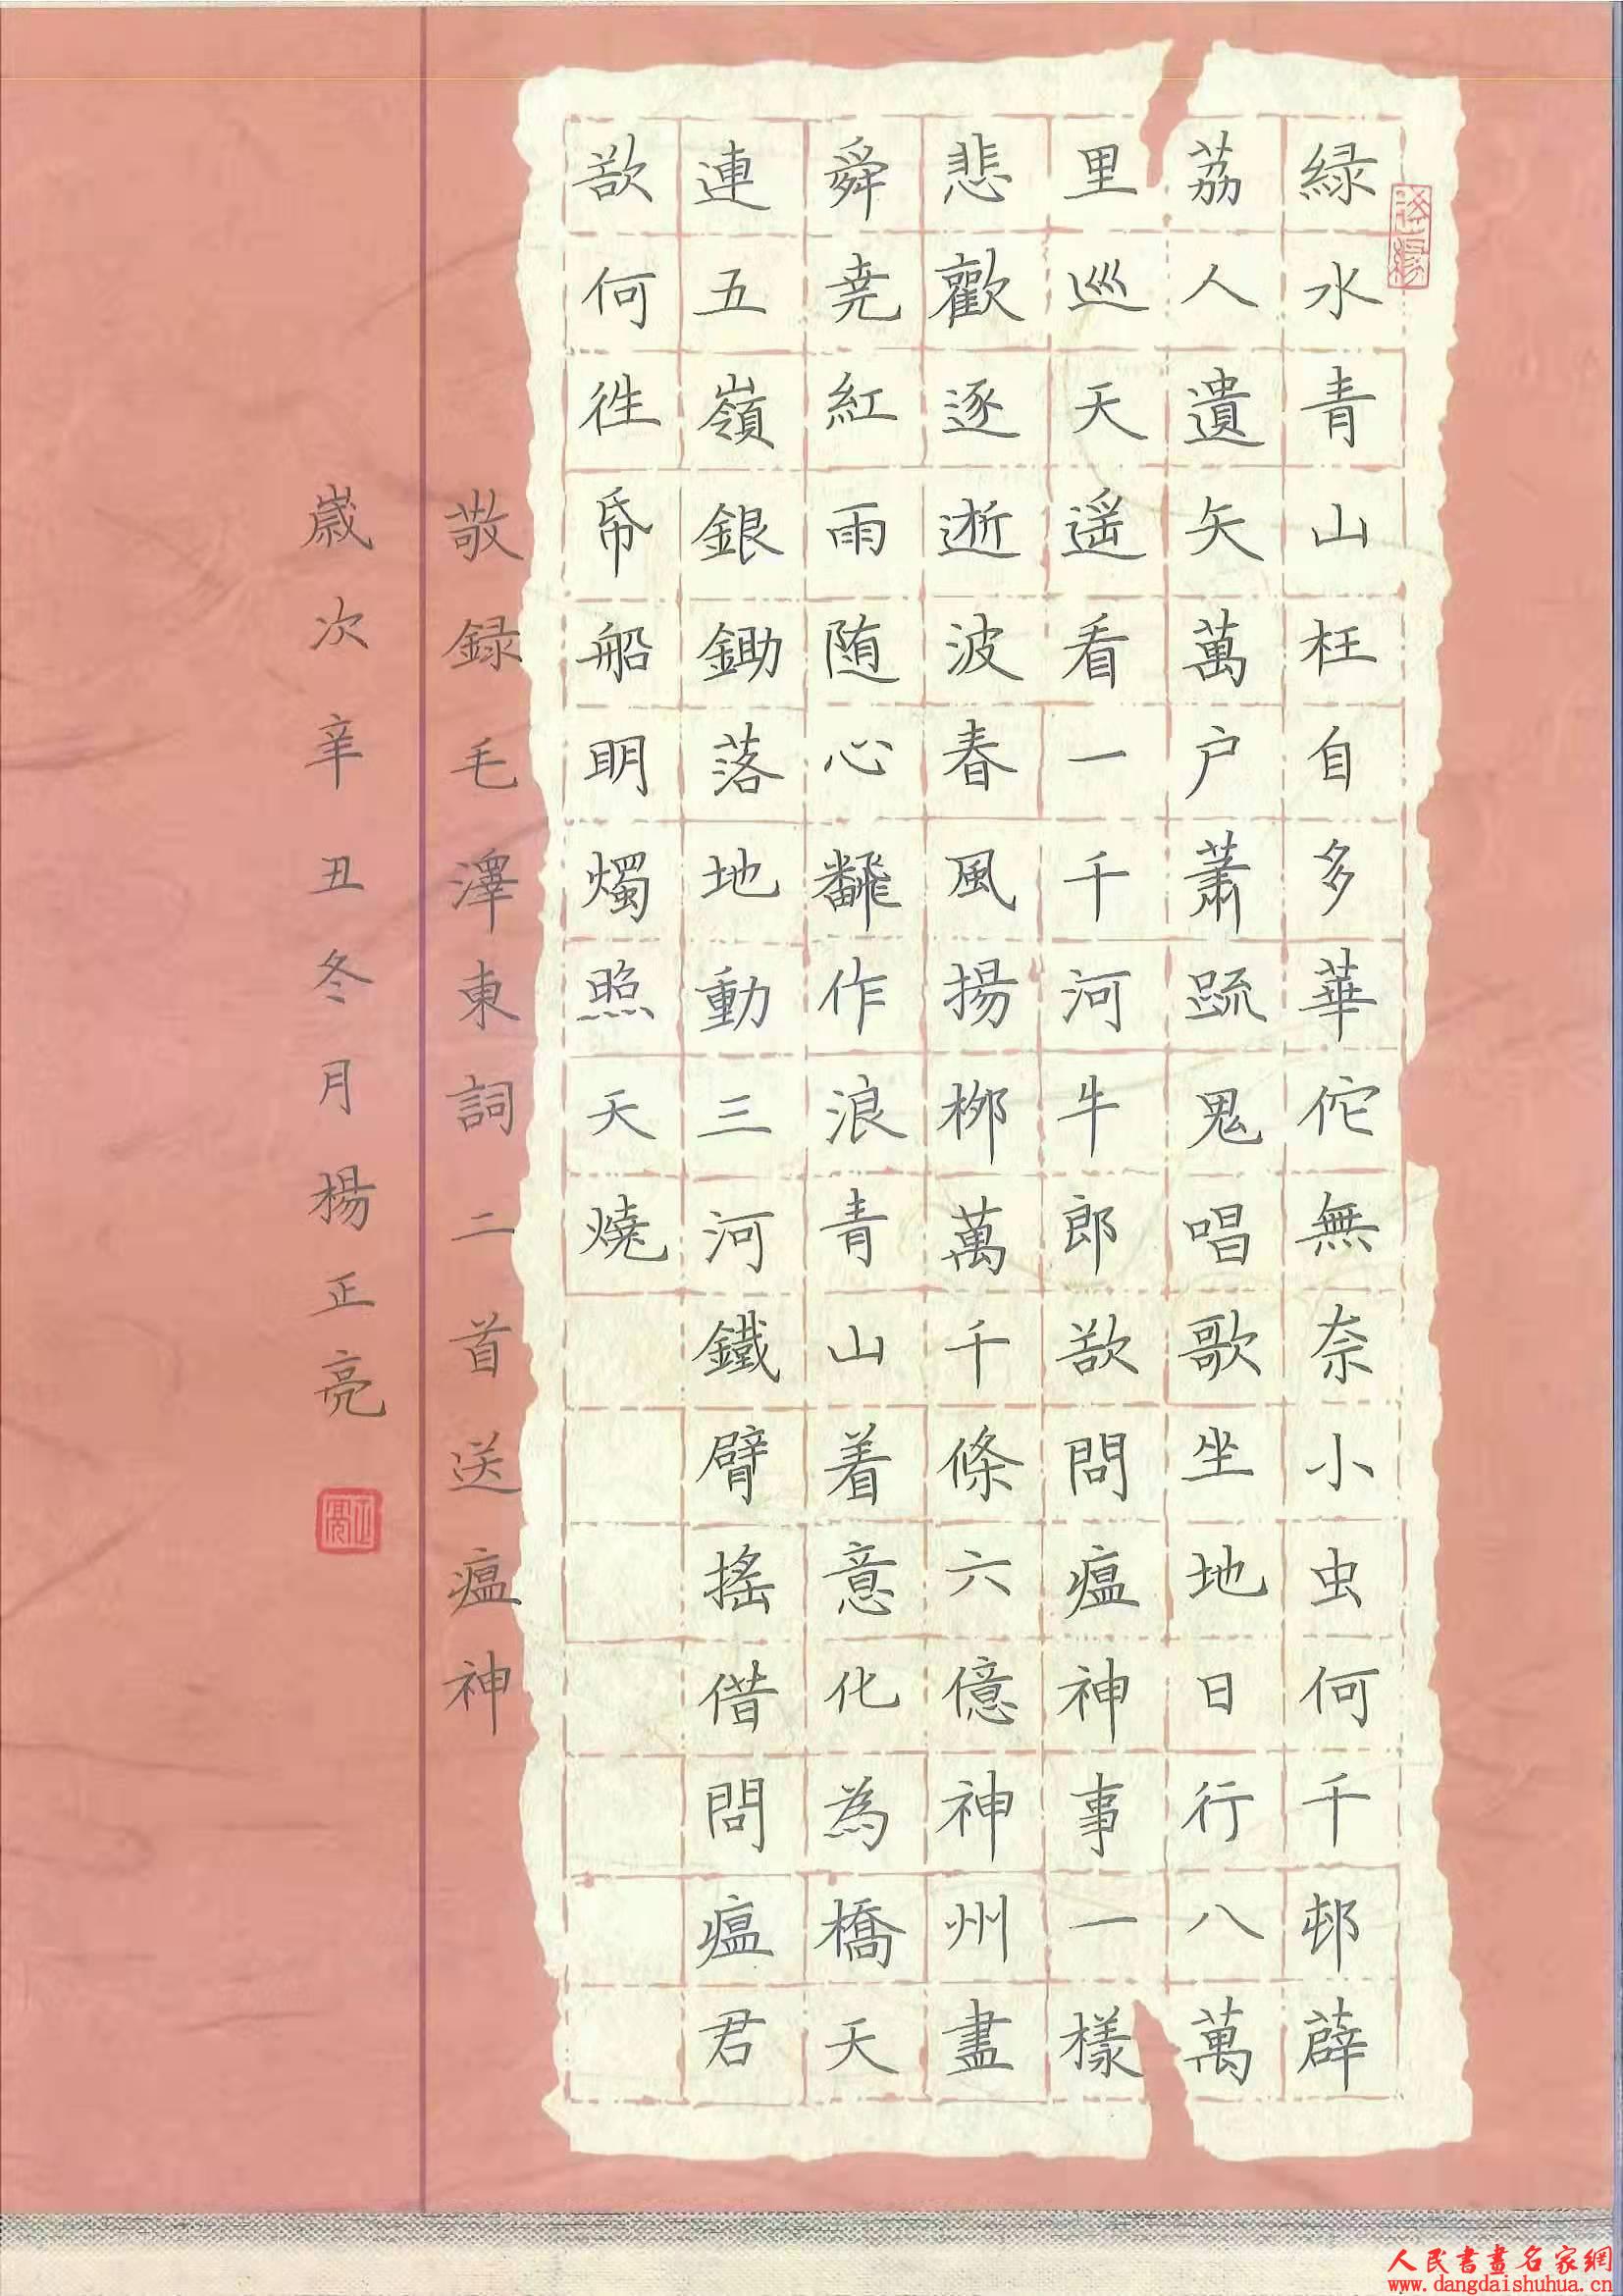 緑水青山枉自多華佗無奈小虫何千邨薜
荔人遺矢萬户蕭疏鬼唱歌坐地日行八萬
里巡天遥看一千河牛郎欲問瘟神事一樣
悲歡逐逝波春風楊柳萬千條六億神州盡
舜尭紅雨随心翻作浪青山着意化為橋天
連五嶺銀鋤落地動三河鐵臂搖借問瘟君
欲何往帋船明燭照天燒
敬録毛澤東詞二首送瘟神
歲次辛丑冬月楊正亮
正亮
人民書畫名家網
www.dangdaishuhua.cn